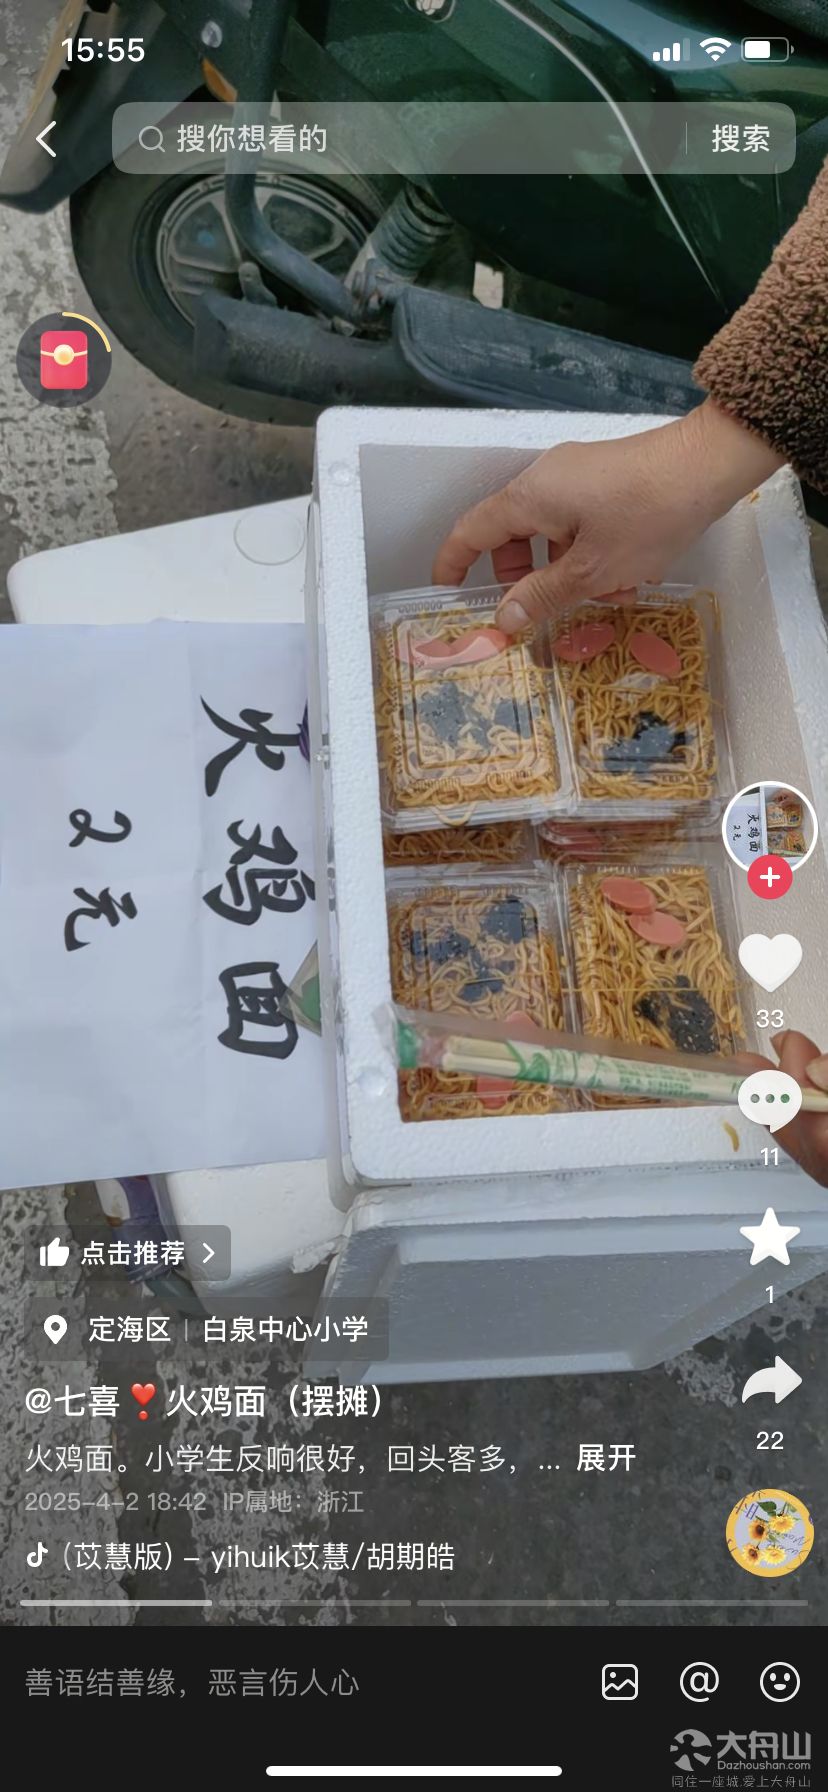 15:55
搜你想看的
搜索
火鸡面
2元
33
11
1
22
点击推荐
定海区
白泉中心小学
@七喜❣️火鸡面（摆摊）
火鸡面。小学生反响很好，回头客多，... 展开
2025-4-2 18:42 IP属地：浙江
（苡慧版）- yihuik苡慧/胡期皓
善语结善缘，恶言伤人心
大舟山
Dazhoushan.com
同住一座城.爱上大舟山